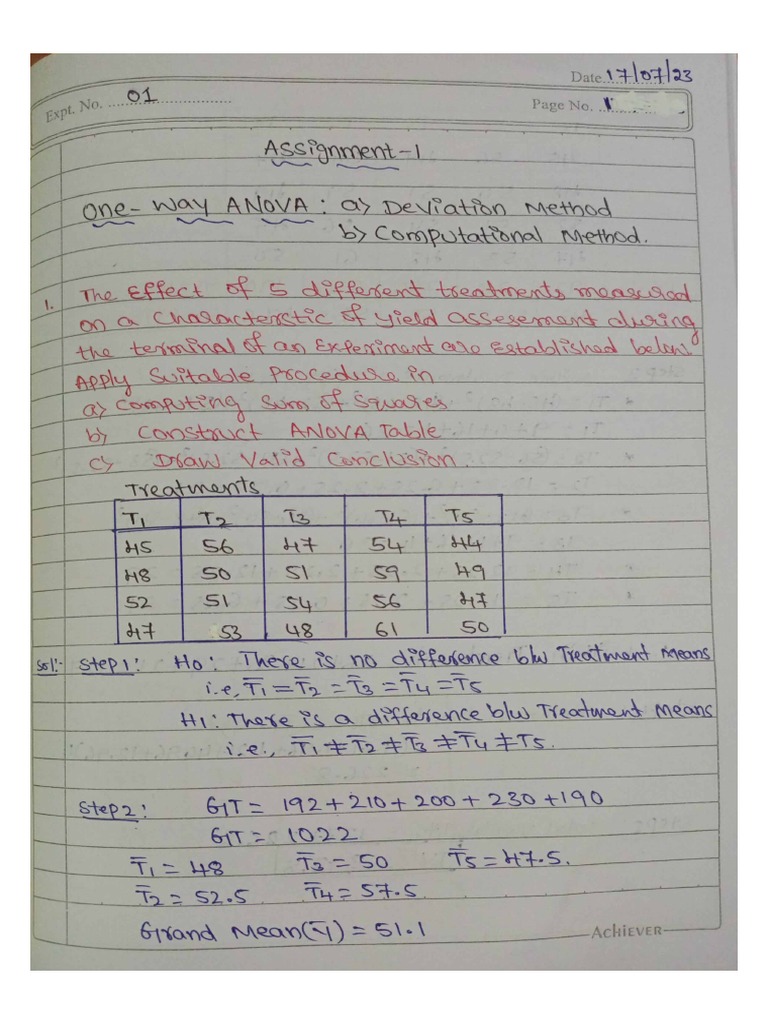 Date..17/07/23
Expt. No. ....01....
Page No. ..1....
Assignment-1
One-Way ANOVA : a) Deviation Method
b) Computational Method.
1. The Effect of 5 different treatments measured
on a characterstic of yield assesement during
the terminal of an Experiment are established below.
Apply Suitable Procedure in
a) Computing Sum of Squares
b) Construct ANOVA Table
c) Draw Valid Conclusion.
Treatments
T1 T2 T3 T4 T5
45 56 47 54 44
48 50 51 59 49
52 51 54 56 47
47 53 48 61 50
Sol:- Step1: H0: There is no difference b/w Treatment Means
i.e, T̄1 = T̄2 = T̄3 = T̄4 = T̄5
H1: There is a difference b/w Treatment Means
i.e., T̄1 ≠ T̄2 ≠ T̄3 ≠ T̄4 ≠ T5.
Step2: GT = 192+210+200+230+190
GT = 1022
T̄1 = 48 T̄3 = 50 T̄5 = 47.5.
T̄2 = 52.5 T̄4 = 57.5
Grand Mean(Ȳ) = 51.1
ACHIEVER